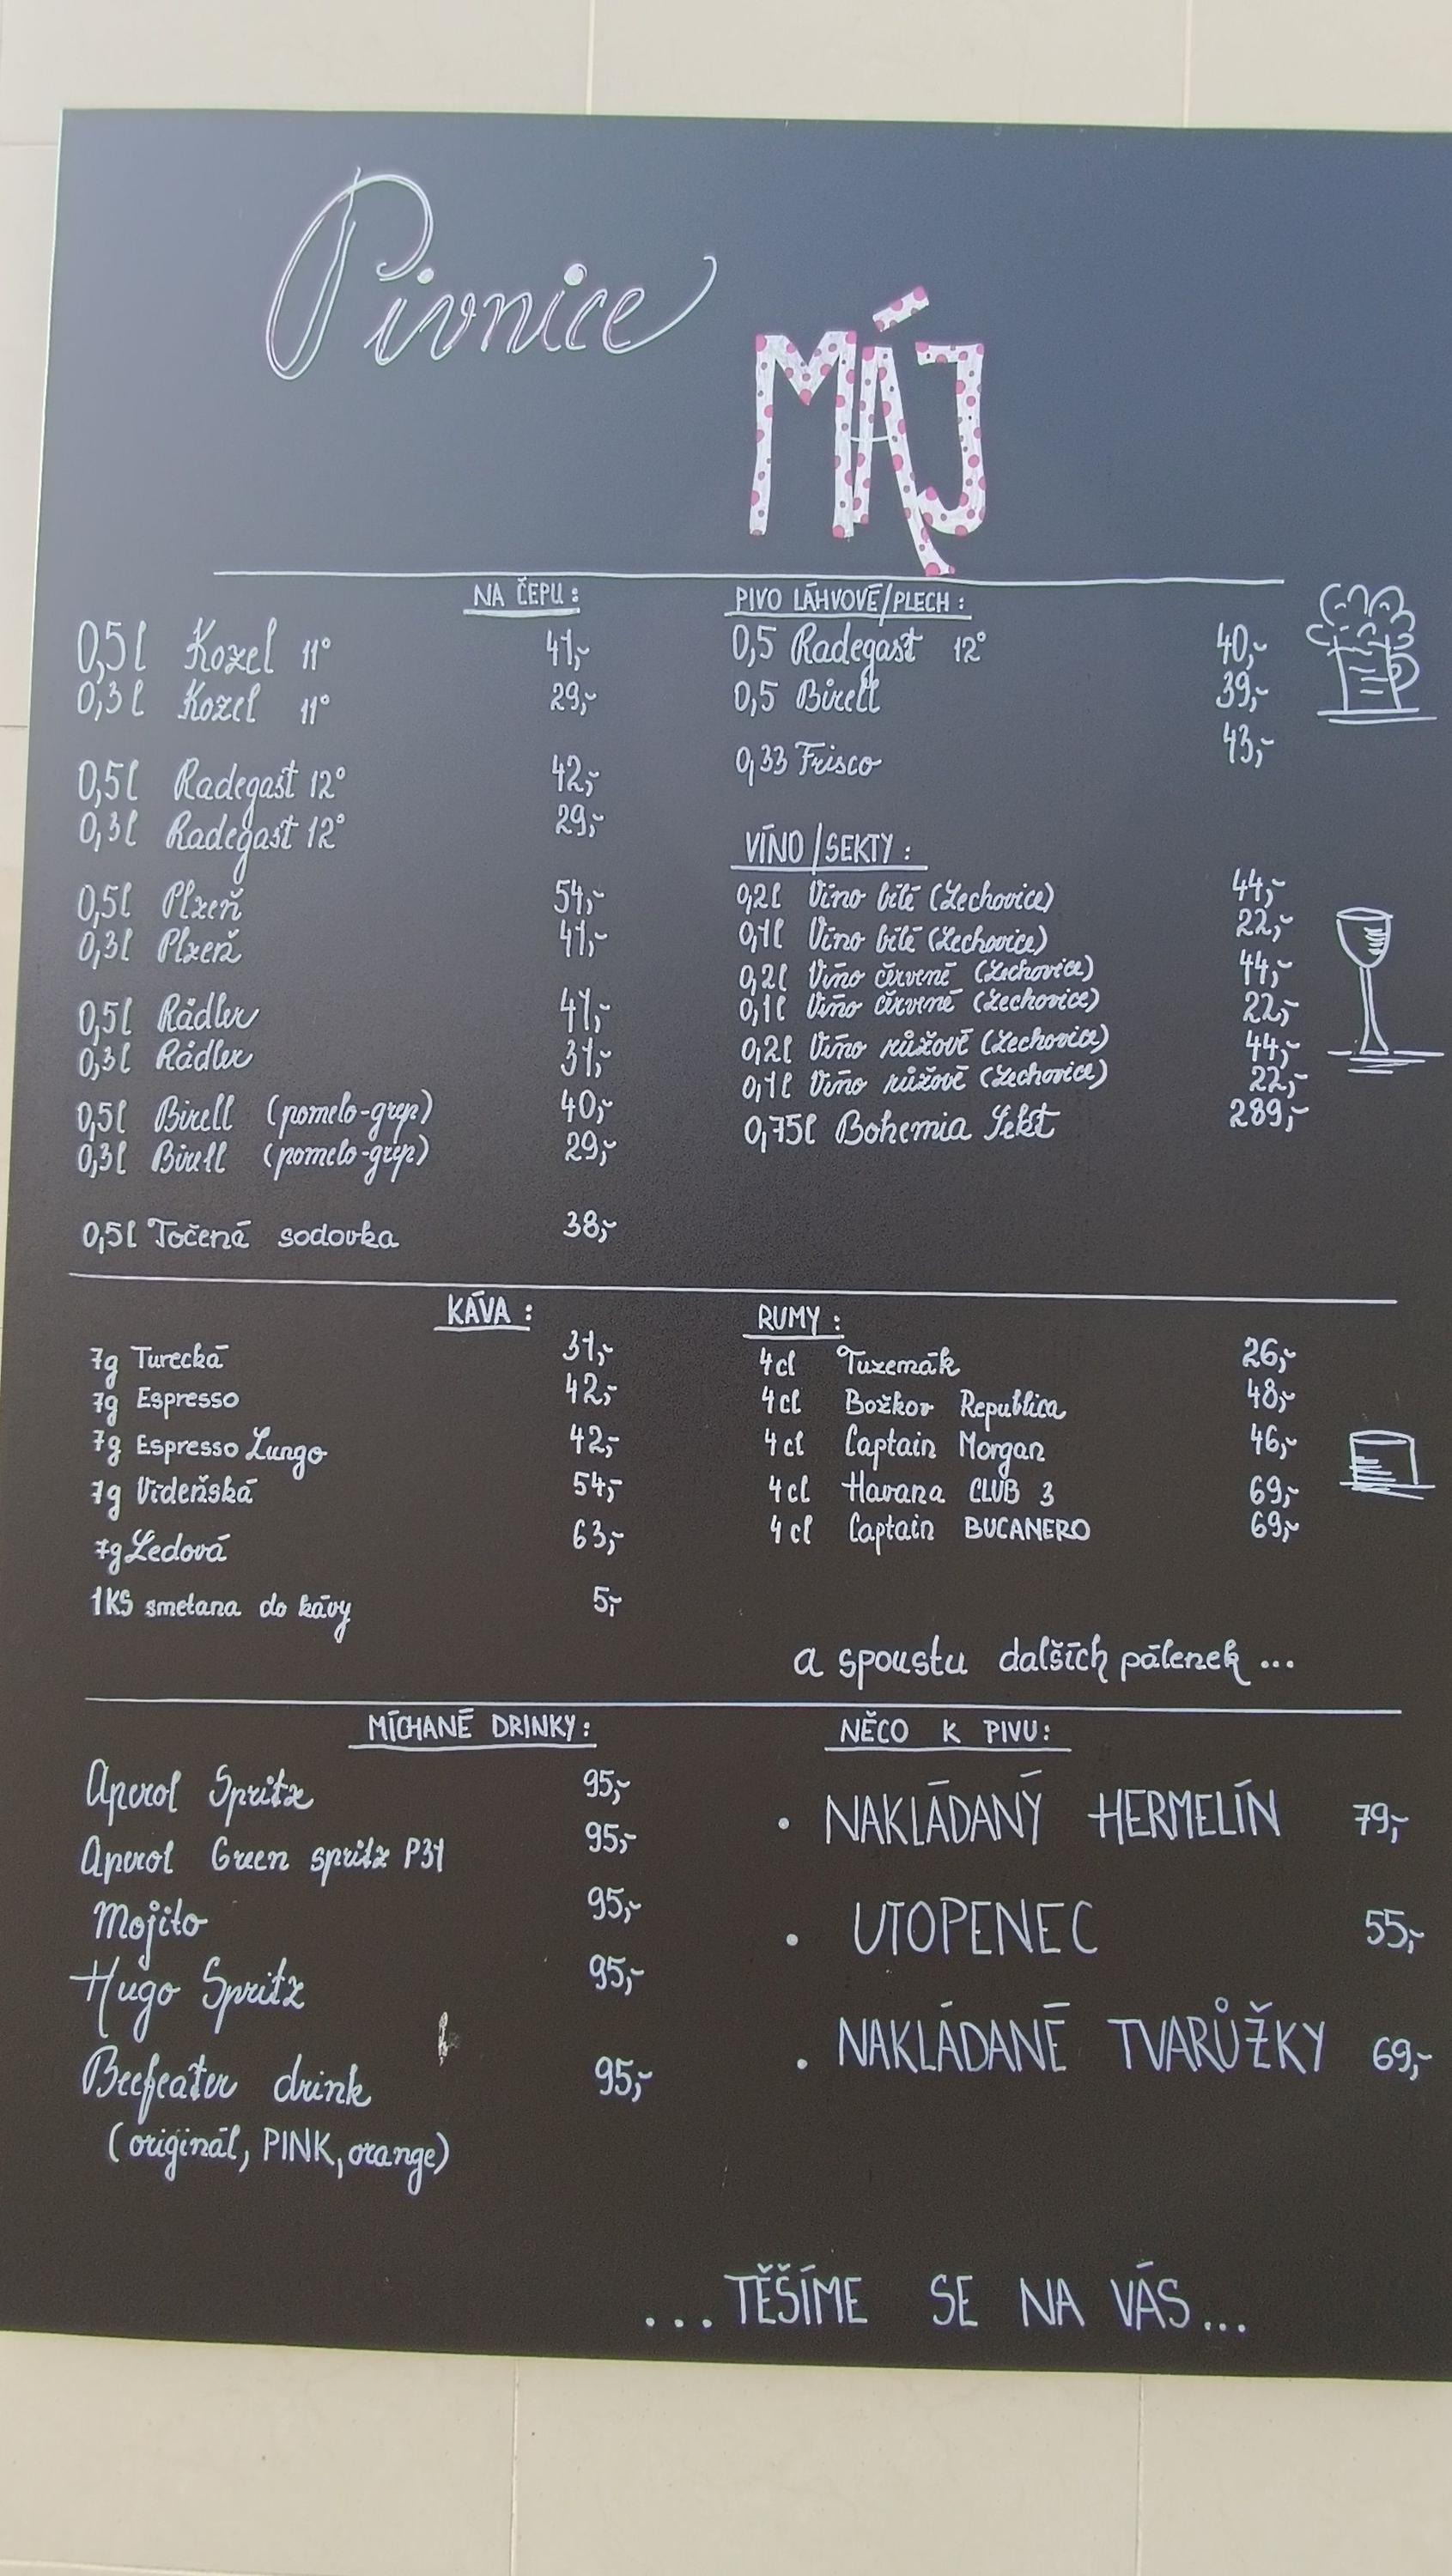 Pivnice
MÁJ
NA ČEPU:
0,5l Kozel 11° 41,-
0,3l Kozel 11° 29,-
0,5l Radegast 12° 42,-
0,3l Radegast 12° 29,-
0,5l Plzeň 54,-
0,3l Plzeň 41,-
0,5l Rádler 41,-
0,3l Rádler 31,-
0,5l Birell (pomelo-grep) 40,-
0,3l Birell (pomelo-grep) 29,-
0,5l Točená sodovka 38,-
PIVO LÁHVOVÉ/PLECH:
0,5 Radegast 12° 40,-
0,5 Birell 39,-
0,33 Frisco 43,-
VÍNO/SEKTY:
0,2l Víno bílé (Lechovice) 44,-
0,1l Víno bílé (Lechovice) 22,-
0,2l Víno červené (Lechovice) 44,-
0,1l Víno červené (Lechovice) 22,-
0,2l Víno růžové (Lechovice) 44,-
0,1l Víno růžové (Lechovice) 22,-
0,75l Bohemia Sekt 289,-
KÁVA:
7g Turecká 31,-
7g Espresso 42,-
7g Espresso Lungo 42,-
7g Vídeňská 54,-
7g Ledová 63,-
1KS smetana do kávy 5,-
RUMY:
4cl Tuzemák 26,-
4cl Božkov Republica 48,-
4cl Captain Morgan 46,-
4cl Havana CLUB 3 69,-
4cl Captain BUCANERO 69,-
a spoustu dalších pálenek...
MÍCHANÉ DRINKY:
Aperol Spritz 95,-
Aperol Green spritz P31 95,-
Mojito 95,-
Hugo Spritz 95,-
Beefeater drink 95,-
(originál, PINK, orange)
NĚCO K PIVU:
• NAKLÁDANÝ HERMELÍN 79,-
• UTOPENEC 55,-
• NAKLÁDANÉ TVARŮŽKY 69,-
...TĚŠÍME SE NA VÁS...